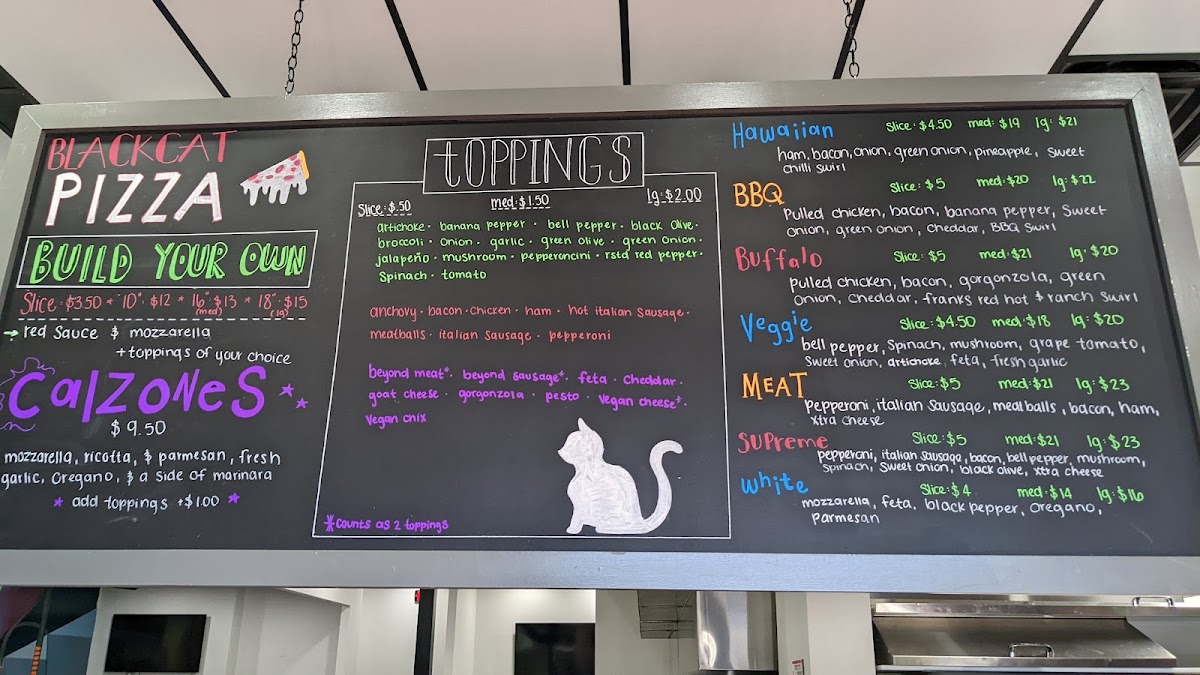 BLACKCAT
PIZZA
BUILD YOUR OWN
Slice: $3.50 * 10": $12 * 16": $13 * 18": $15
(med) (lg)
→ red sauce & mozzarella
+ toppings of your choice
CalZoNeS
$9.50
mozzarella, ricotta, & parmesan, fresh
garlic, oregano, & a side of marinara
* add toppings +$1.00 *
TOPPINGS
Slice: $.50 med: $1.50 lg: $2.00
artichoke · banana pepper · bell pepper · black olive ·
broccoli · onion · garlic · green olive · green onion ·
jalapeño · mushroom · pepperoncini · rstd red pepper ·
Spinach · tomato
anchovy · bacon · chicken · ham · hot italian sausage ·
meatballs · italian sausage · pepperoni
beyond meat* · beyond sausage* · feta · cheddar ·
goat cheese · gorgonzola · pesto · vegan cheese* ·
vegan chix
*counts as 2 toppings
Hawaiian Slice: $4.50 med: $19 lg: $21
ham, bacon, onion, green onion, pineapple, sweet
chilli swirl
BBQ Slice: $5 med: $20 lg: $22
Pulled chicken, bacon, banana pepper, sweet
onion, green onion, cheddar, BBQ swirl
Buffalo Slice: $5 med: $21 lg: $20
pulled chicken, bacon, gorgonzola, green
onion, cheddar, franks red hot & ranch swirl
Veggie Slice: $4.50 med: $18 lg: $20
bell pepper, spinach, mushroom, grape tomato,
sweet onion, artichoke, feta, fresh garlic
MEAT Slice: $5 med: $21 lg: $23
pepperoni, italian sausage, meatballs, bacon, ham,
xtra cheese
Supreme Slice: $5 med: $21 lg: $23
pepperoni, italian sausage, bacon, bell pepper, mushroom,
spinach, sweet onion, black olive, xtra cheese
white Slice: $4 med: $14 lg: $16
mozzarella, feta, black pepper, oregano,
parmesan